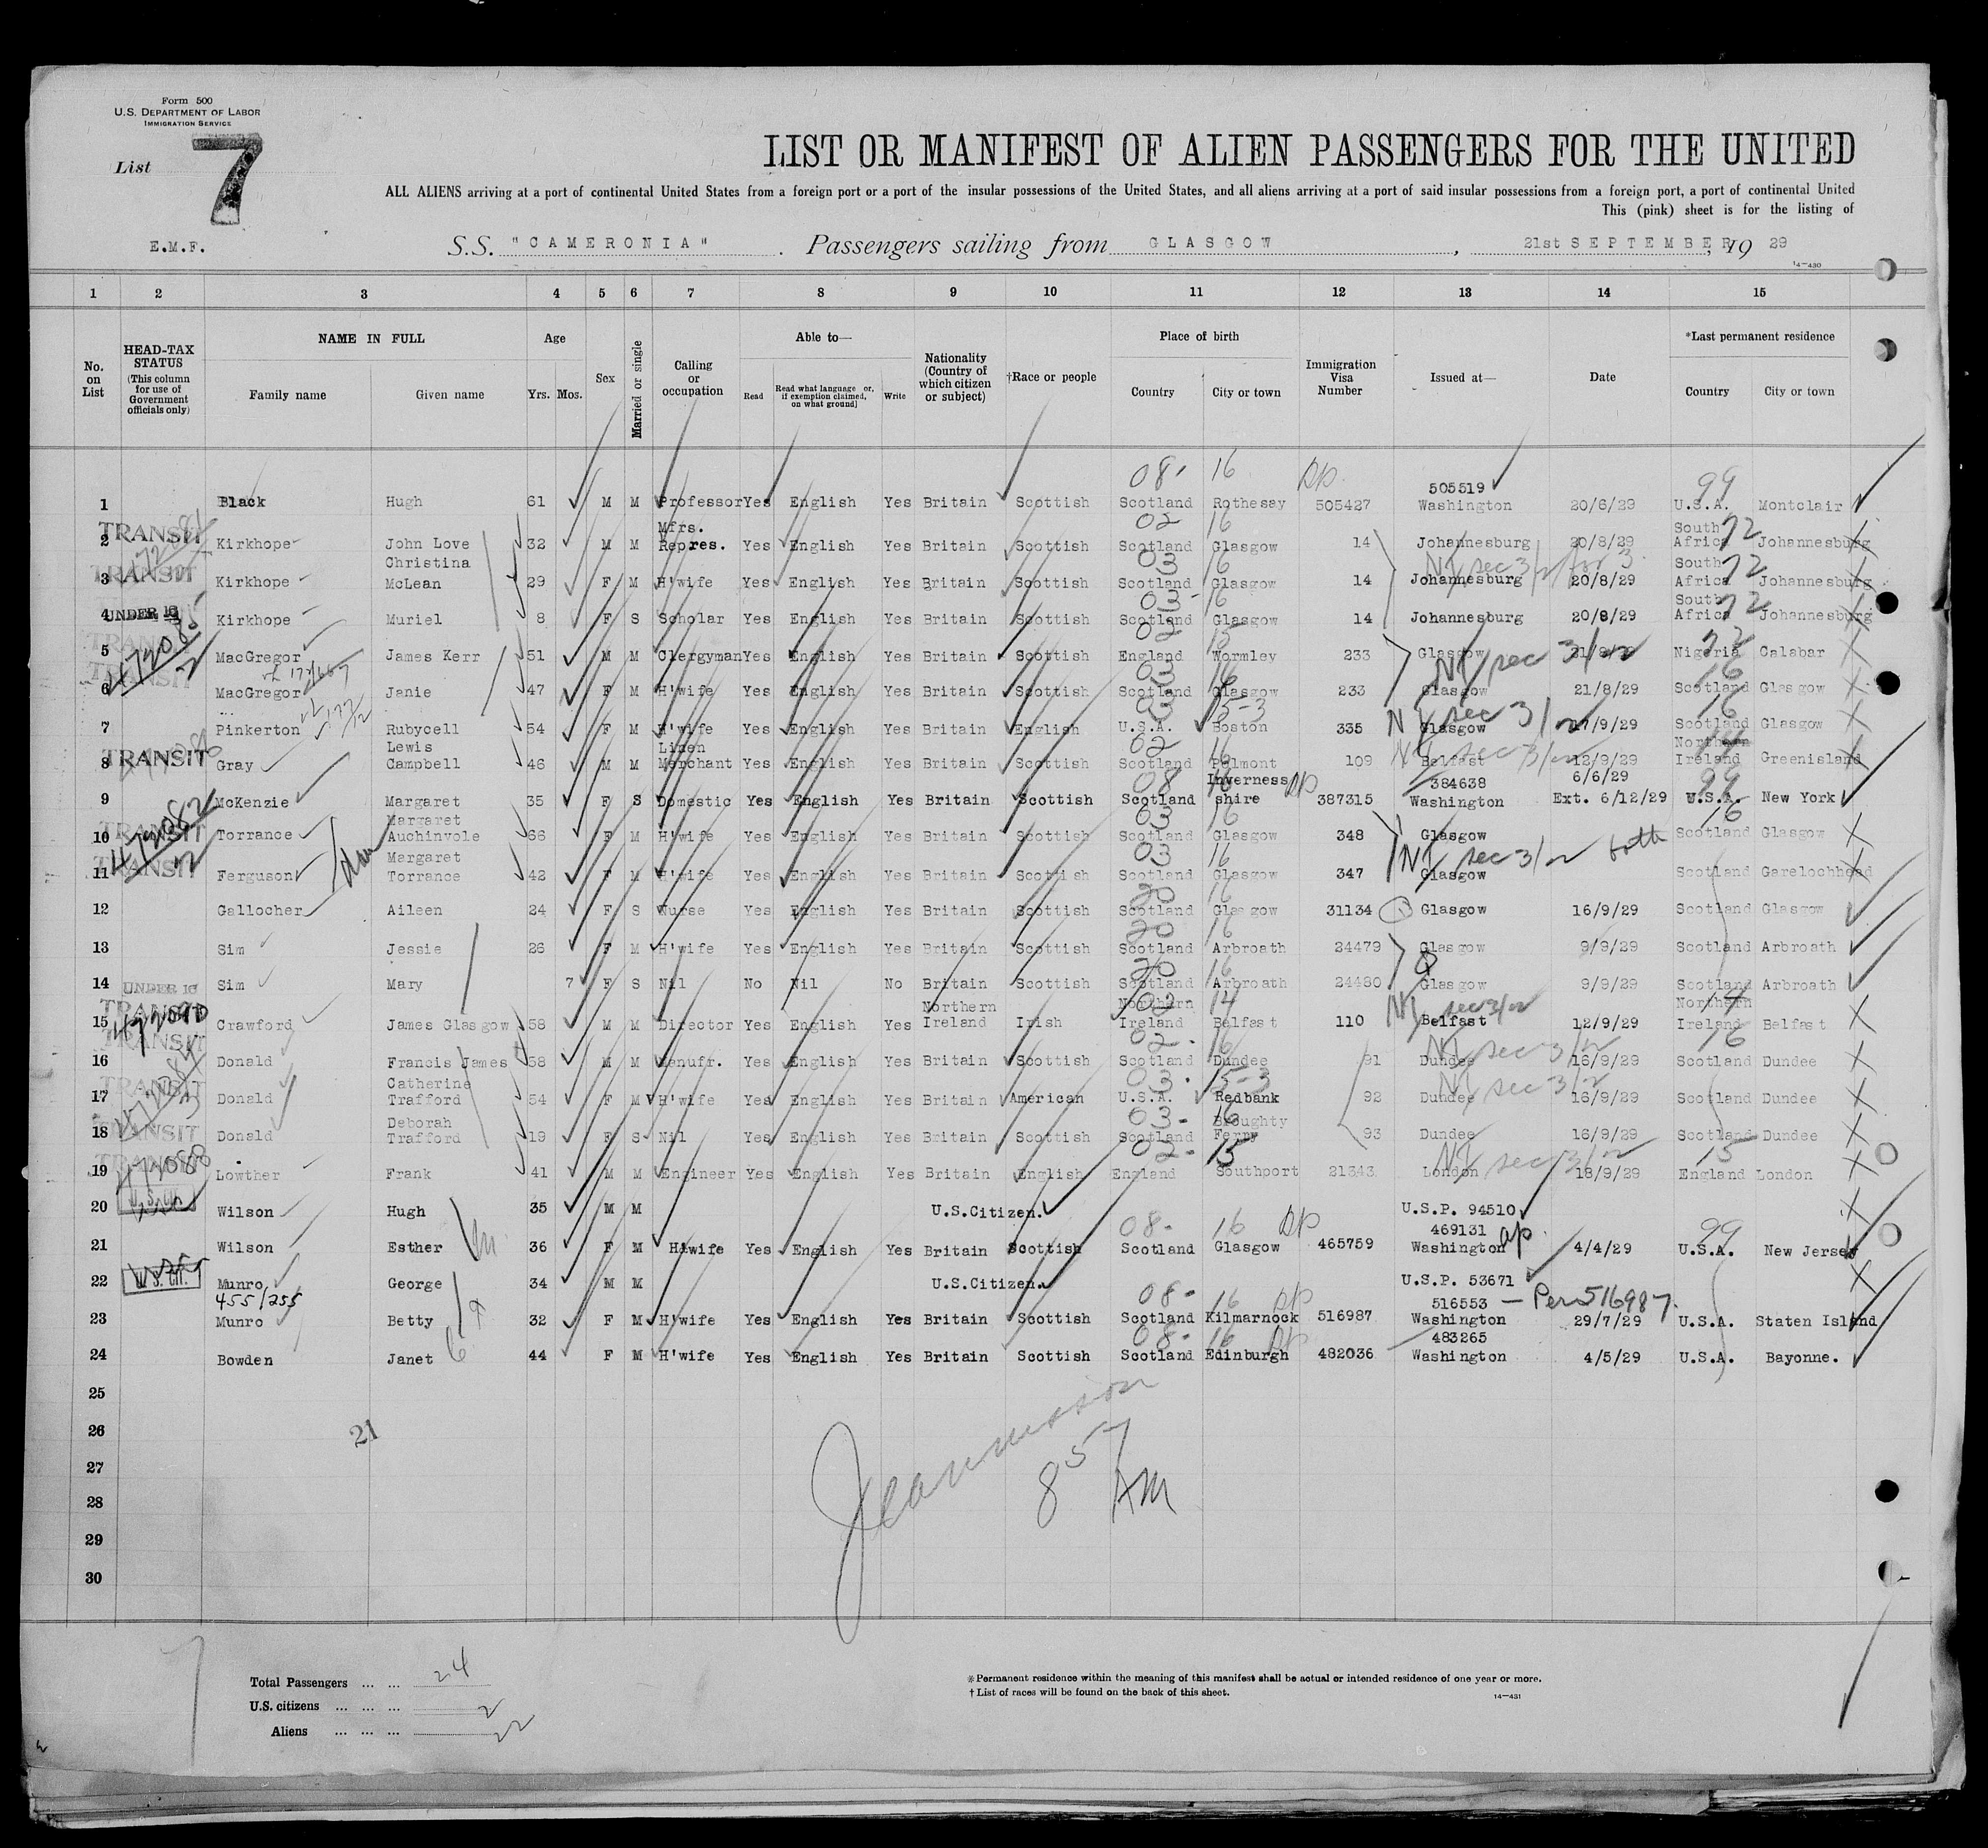 Form 500
U.S. DEPARTMENT OF LABOR
IMMIGRATION SERVICE
List 7
LIST OR MANIFEST OF ALIEN PASSENGERS FOR THE UNITED
ALL ALIENS arriving at a port of continental United States from a foreign port or a port of the insular possessions of the United States, and all aliens arriving at a port of said insular possessions from a foreign port, a port of continental United
This (pink) sheet is for the listing of
E.M.F. S.S. "CAMERONIA". Passengers sailing from GLASGOW, 21st SEPTEMBER, 19 29
14-430
1 2 3 4 5 6 7 8 9 10 11 12 13 14 15
No. on List
HEAD-TAX STATUS (This column for use of Government officials only)
NAME IN FULL
Family name Given name
Age
Yrs. Mos.
Sex
Married or single
Calling or occupation
Able to—
Read Read what language or, if exemption claimed, on what ground] Write
Nationality (Country of which citizen or subject)
†Race or people
Place of birth
Country City or town
Immigration Visa Number
Issued at—
Date
*Last permanent residence
Country City or town
08- 16 DP 505519 99
1 Black Hugh 61 M M Professor Yes English Yes Britain Scottish Scotland Rothesay 505427 Washington 20/6/29 U.S.A. Montclair
TRANSIT Mfrs. 02 16 South 72
2 Kirkhope John Love 32 M M Repres. Yes English Yes Britain Scottish Scotland Glasgow 14 Johannesburg 20/8/29 Africa Johannesburg
TRANSIT Christina 03 16 South 72
3 Kirkhope McLean 29 F M H'wife Yes English Yes Britain Scottish Scotland Glasgow 14 Johannesburg 20/8/29 Africa Johannesburg
UNDER 16 03- 16 South 72
4 Kirkhope Muriel 8 F S Scholar Yes English Yes Britain Scottish Scotland Glasgow 14 Johannesburg 20/8/29 Africa Johannesburg
TRANSIT 02 15
5 MacGregor James Kerr 51 M M Clergyman Yes English Yes Britain Scottish England Wormley 233 Glasgow 21/8/29 Nigeria Calabar
TRANSIT 03 16 NI sec 3/2 16
6 MacGregor Janie 47 F M H'wife Yes English Yes Britain Scottish Scotland Glasgow 233 Glasgow 21/8/29 Scotland Glasgow
03 15-3 NI sec 3/2 16
7 Pinkerton Rubycell 54 F M H'wife Yes English Yes Britain English U.S.A. Boston 335 Glasgow 17/9/29 Scotland Glasgow
TRANSIT Lewis Linen 02 16 Northern 14
8 Gray Campbell 46 M M Merchant Yes English Yes Britain Scottish Scotland Belmont 109 Belfast 12/9/29 Ireland Greenisland
08 16 Inverness DP 384638 6/6/29 99
9 McKenzie Margaret 35 F S Domestic Yes English Yes Britain Scottish Scotland shire 387315 Washington Ext. 6/12/29 U.S.A. New York
TRANSIT Margaret 03 16 16
10 Torrance Auchinvole 66 F M H'wife Yes English Yes Britain Scottish Scotland Glasgow 348 Glasgow Scotland Glasgow
TRANSIT Margaret 03 16 NI sec 3/2 both
11 Ferguson Torrance 42 F M H'wife Yes English Yes Britain Scottish Scotland Glasgow 347 Glasgow Scotland Garelochhead
20 16
12 Gallocher Aileen 24 F S Nurse Yes English Yes Britain Scottish Scotland Glasgow 31134 Glasgow 16/9/29 Scotland Glasgow
20 16
13 Sim Jessie 26 F M H'wife Yes English Yes Britain Scottish Scotland Arbroath 24479 Glasgow 9/9/29 Scotland Arbroath
20 16
14 UNDER 16 Sim Mary 7 F S Nil No Nil No Britain Scottish Scotland Arbroath 24480 Glasgow 9/9/29 Scotland Arbroath
TRANSIT Northern Northern 02 14 NI sec 3/2 Northern 4
15 Crawford James Glasgow 58 M M Director Yes English Yes Ireland Irish Ireland Belfast 110 Belfast 12/9/29 Ireland Belfast
TRANSIT 02- 16 NI sec 3/2 16
16 Donald Francis James 58 M M Manufr. Yes English Yes Britain Scottish Scotland Dundee 91 Dundee 16/9/29 Scotland Dundee
TRANSIT Catherine 03- 15-3 NI sec 3/2
17 Donald Trafford 54 F M H'wife Yes English Yes Britain American U.S.A. Redbank 92 Dundee 16/9/29 Scotland Dundee
TRANSIT Deborah 03- 16 Broughty
18 Donald Trafford 19 F S Nil Yes English Yes Britain Scottish Scotland Ferry 93 Dundee 16/9/29 Scotland Dundee
TRANSIT 472088 02- 15 NI sec 3/2 15
19 Lowther Frank 41 M M Engineer Yes English Yes Britain English England Southport 21343 London 18/9/29 England London
U.S. Cit.
20 Wilson Hugh 35 M M U.S.Citizen. U.S.P. 94510
08- 16 DP 469131 99
21 Wilson Esther 36 F M H'wife Yes English Yes Britain Scottish Scotland Glasgow 465759 Washington 4/4/29 U.S.A. New Jersey
U.S. Cit.
22 Munro George 34 M M U.S.Citizen. U.S.P. 53671
455/255 08- 16 DP 516553 — Per 516987.
23 Munro Betty 32 F M H'wife Yes English Yes Britain Scottish Scotland Kilmarnock 516987 Washington 29/7/29 U.S.A. Staten Island
08- 16 DP 483265
24 Bowden Janet 44 F M H'wife Yes English Yes Britain Scottish Scotland Edinburgh 482036 Washington 4/5/29 U.S.A. Bayonne.
25
26 21
27
28
29
30
857 AM
Total Passengers ... ... 24
U.S. citizens ... ... ... 2
Aliens ... ... ... 22
*Permanent residence within the meaning of this manifest shall be actual or intended residence of one year or more.
†List of races will be found on the back of this sheet.
14-431